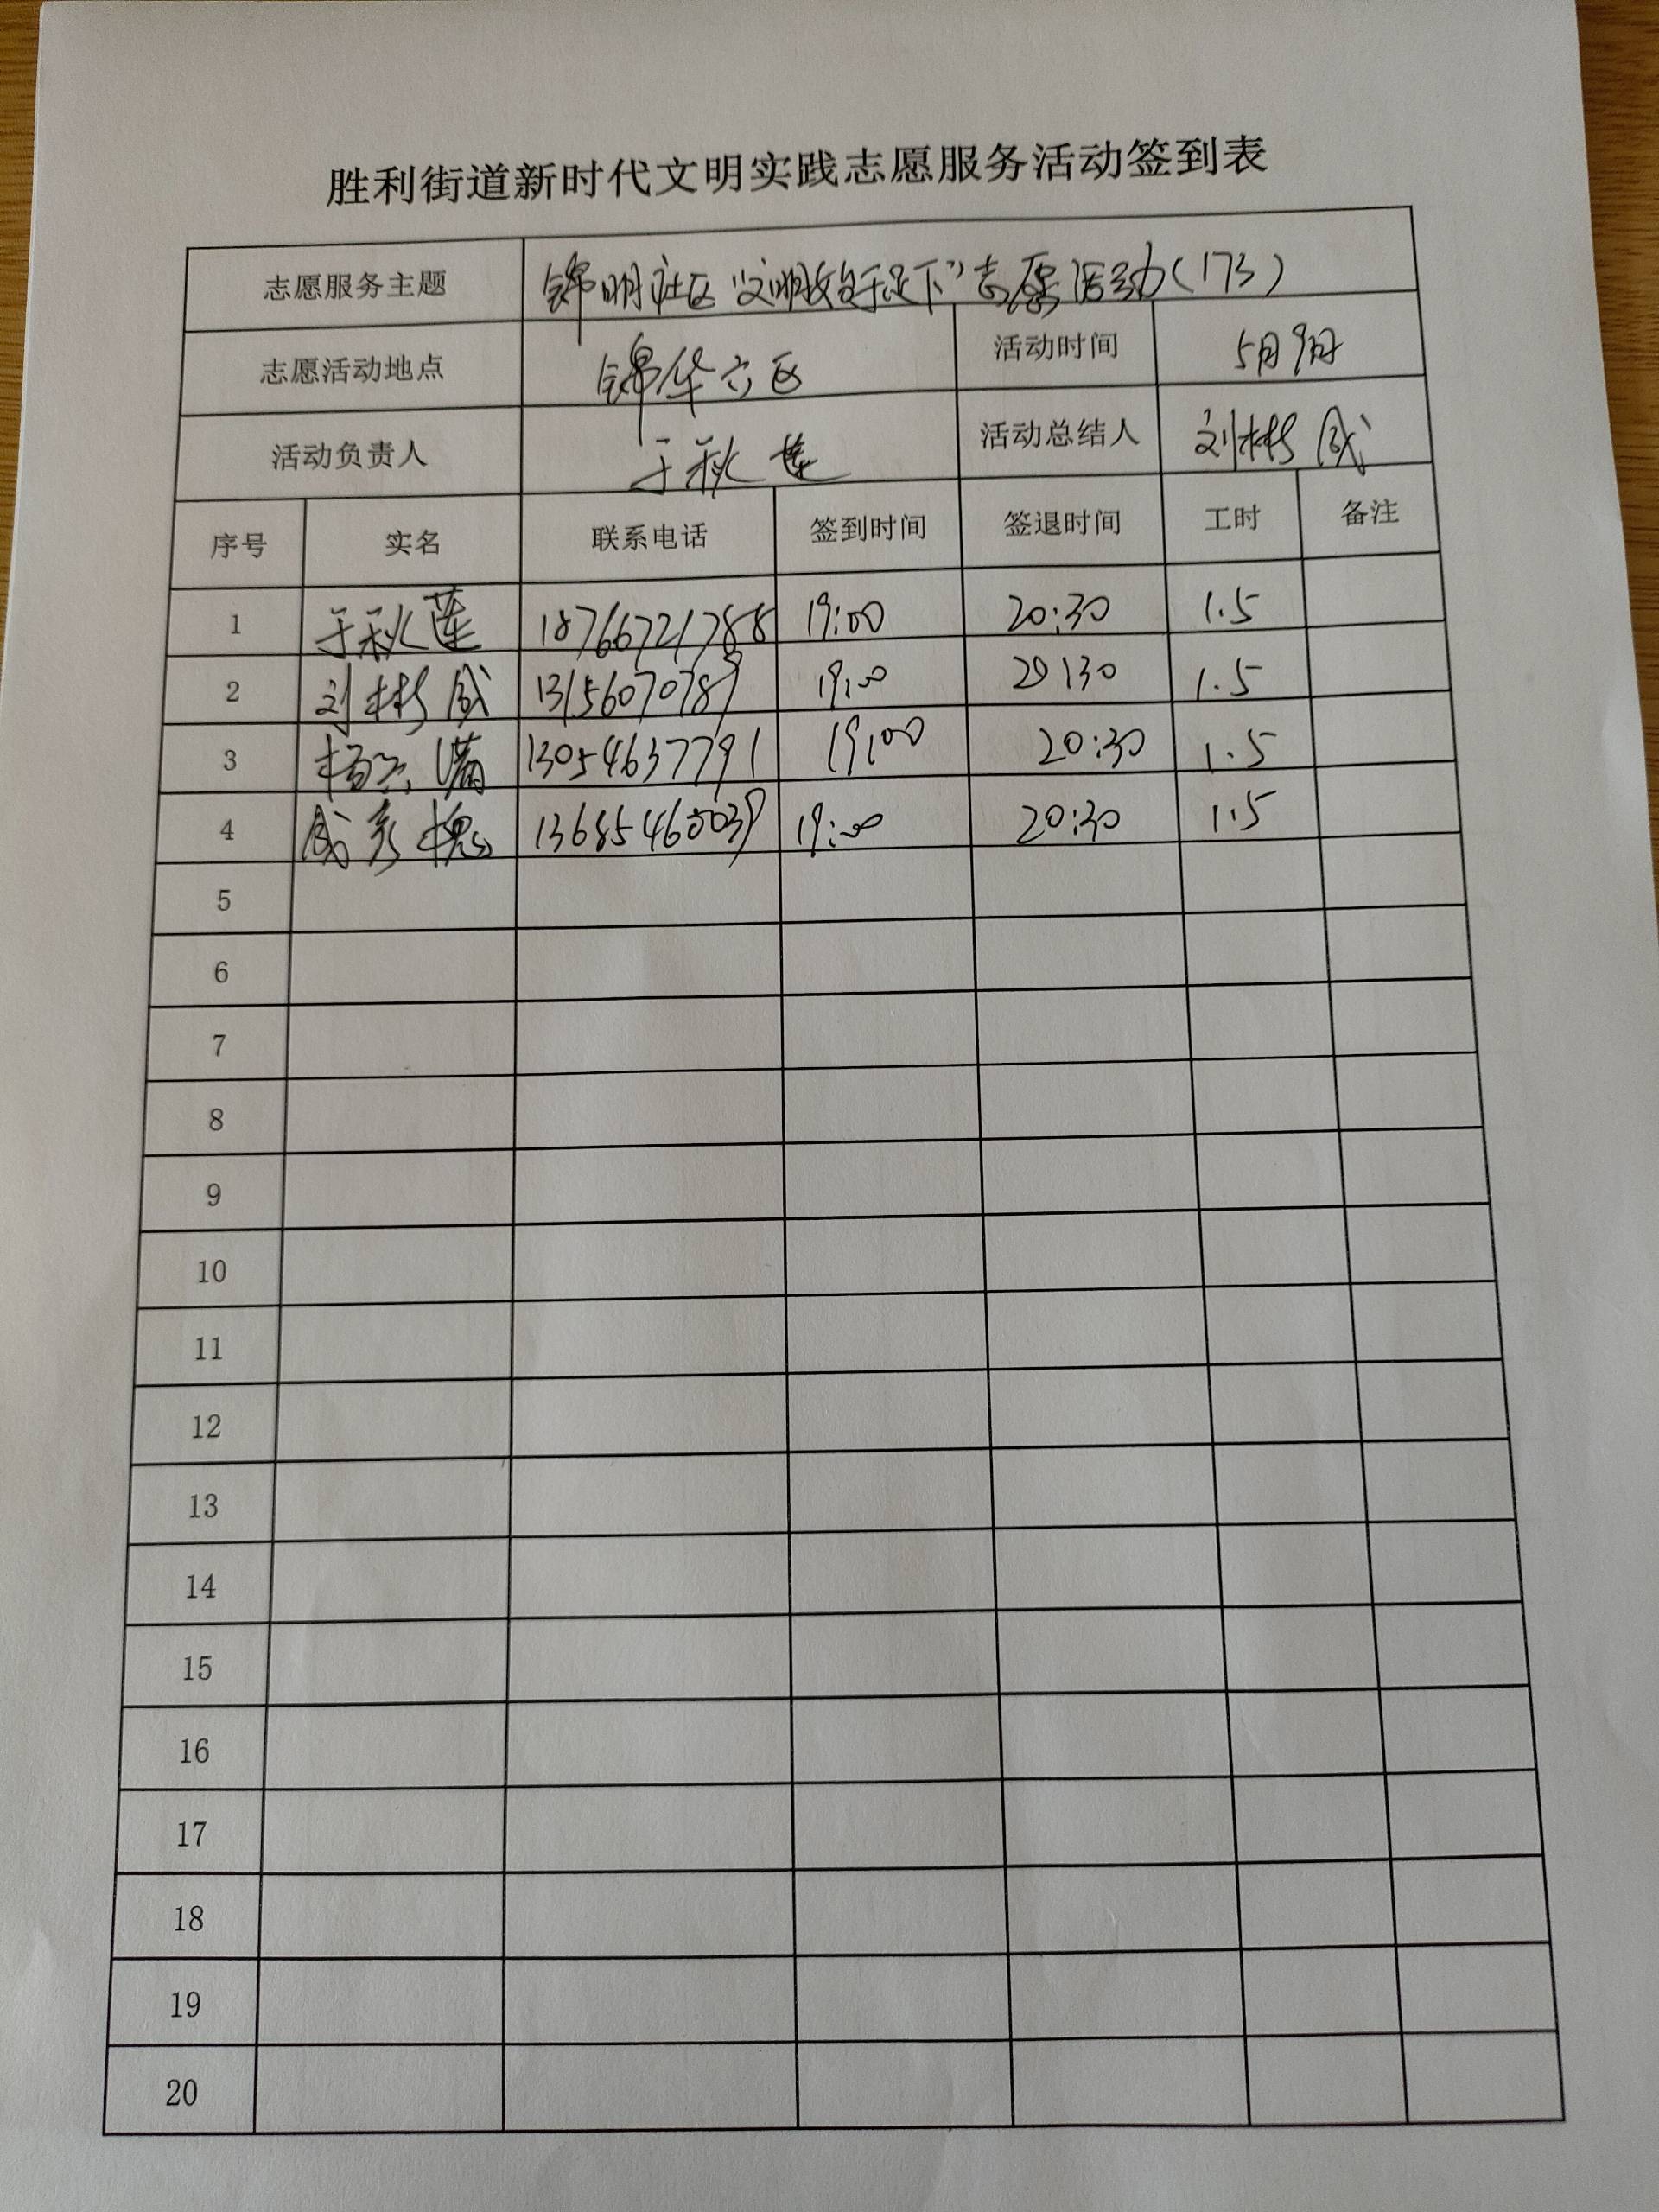 胜利街道新时代文明实践志愿服务活动签到表
志愿服务主题 锦明社区“文明始于足下”志愿活动(173)
志愿活动地点 锦华六区 活动时间 5月9日
活动负责人 于秋莲 活动总结人 刘彬成
序号 实名 联系电话 签到时间 签退时间 工时 备注
1 于秋莲 18766721788 19:00 20:30 1.5
2 刘彬成 13156070789 19:00 20:30 1.5
3 13054637791 19:00 20:30 1.5
4 13685460039 19:00 20:30 1.5
5
6
7
8
9
10
11
12
13
14
15
16
17
18
19
20